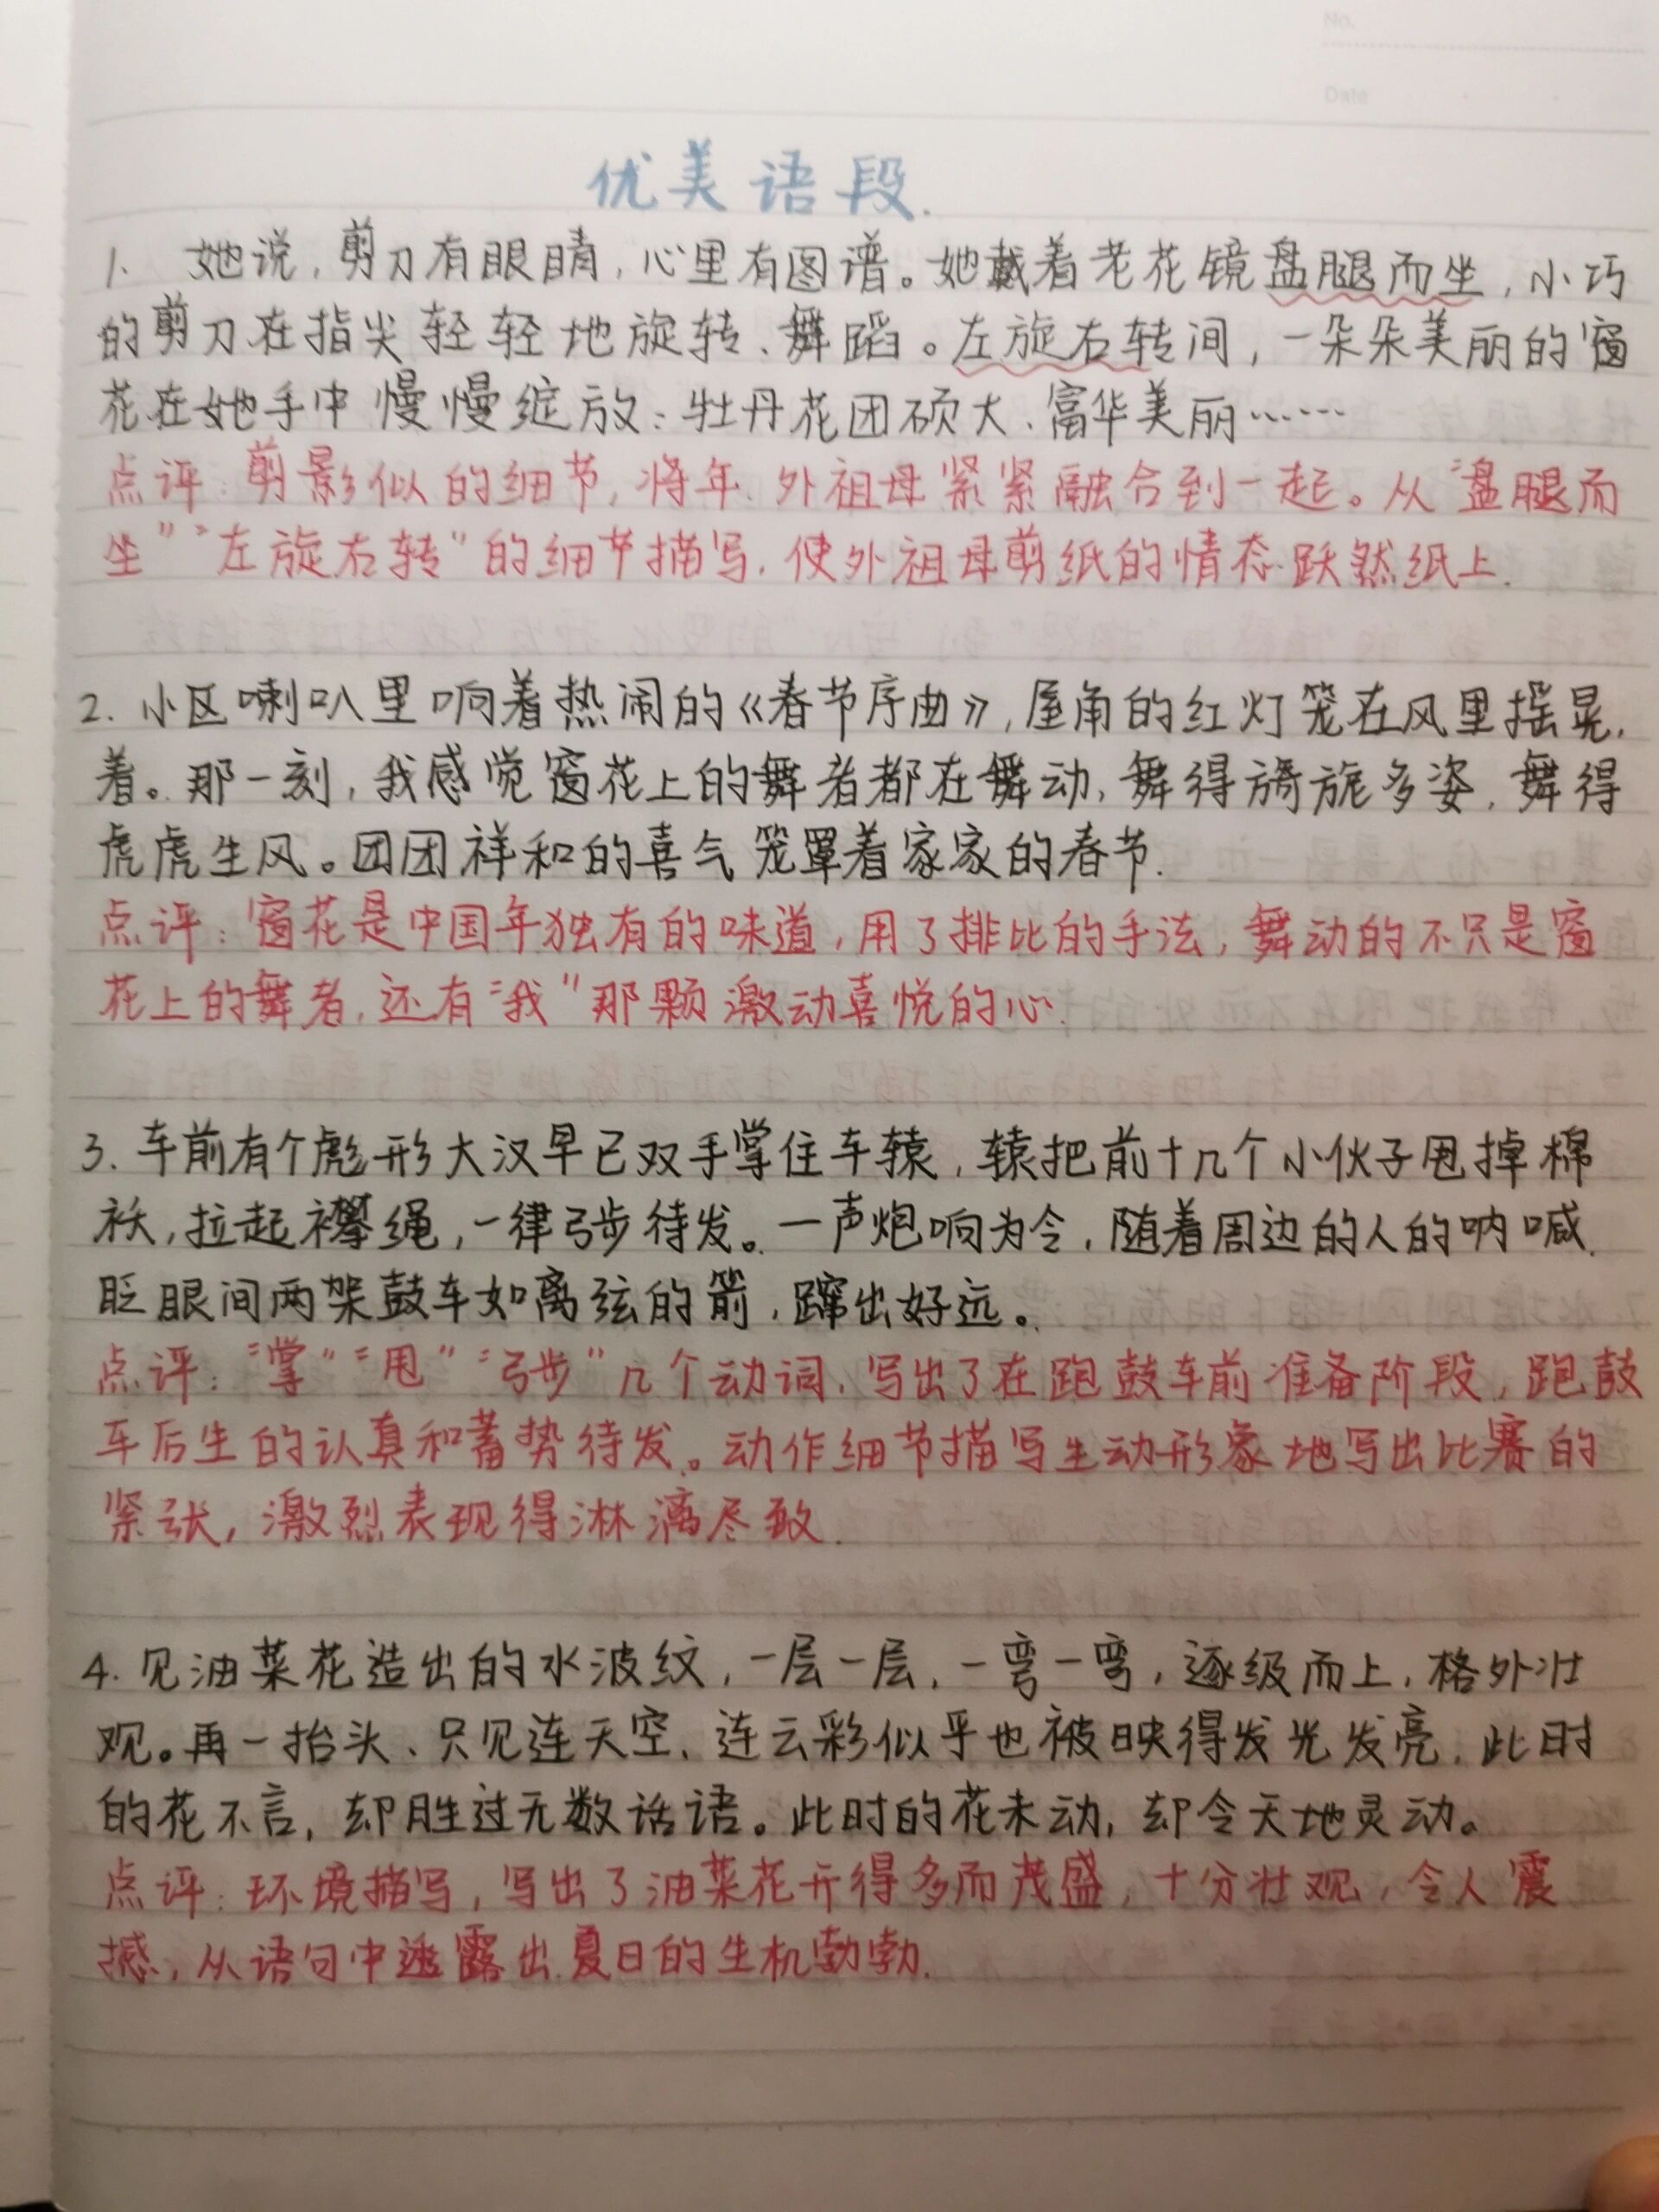 No.
Date
优美语段.
1. 她说,剪刀有眼睛,心里有图谱。她戴着老花镜盘腿而坐,小巧
的剪刀在指尖轻轻地旋转、舞蹈。左旋右转间,一朵朵美丽的窗
花在她手中慢慢绽放:牡丹花团硕大、富华美丽……
点评:剪影似的细节,将年、外祖母紧紧融合到一起。从“盘腿而
坐”“左旋右转”的细节描写,使外祖母剪纸的情态跃然纸上.
2. 小区喇叭里响着热闹的《春节序曲》,屋角的红灯笼在风里摇晃
着。那一刻,我感觉窗花上的舞者都在舞动,舞得旖旎多姿,舞得
虎虎生风。团团祥和的喜气笼罩着家家的春节.
点评:窗花是中国年独有的味道,用了排比的手法,舞动的不只是窗
花上的舞者,还有“我”那颗激动喜悦的心.
3. 车前有个彪形大汉早已双手掌住车辕,辕把前十几个小伙子甩掉棉
袄,拉起襻绳,一律弓步待发。一声炮响为令,随着周边的人的呐喊,
眨眼间两架鼓车如离弦的箭,蹿出好远。
点评:“掌”“甩”“弓步”几个动词,写出了在跑鼓车前准备阶段,跑鼓
车后生的认真和蓄势待发。动作细节描写生动形象地写出比赛的
紧张,激烈表现得淋漓尽致.
4. 见油菜花造出的水波纹,一层一层,一弯一弯,逐级而上,格外壮
观。再一抬头、只见连天空、连云彩似乎也被映得发光发亮.此时
的花不言,却胜过无数话语。此时的花未动,却令天地灵动。
点评:环境描写,写出了油菜花开得多而茂盛,十分壮观,令人震
撼,从语句中透露出夏日的生机勃勃.